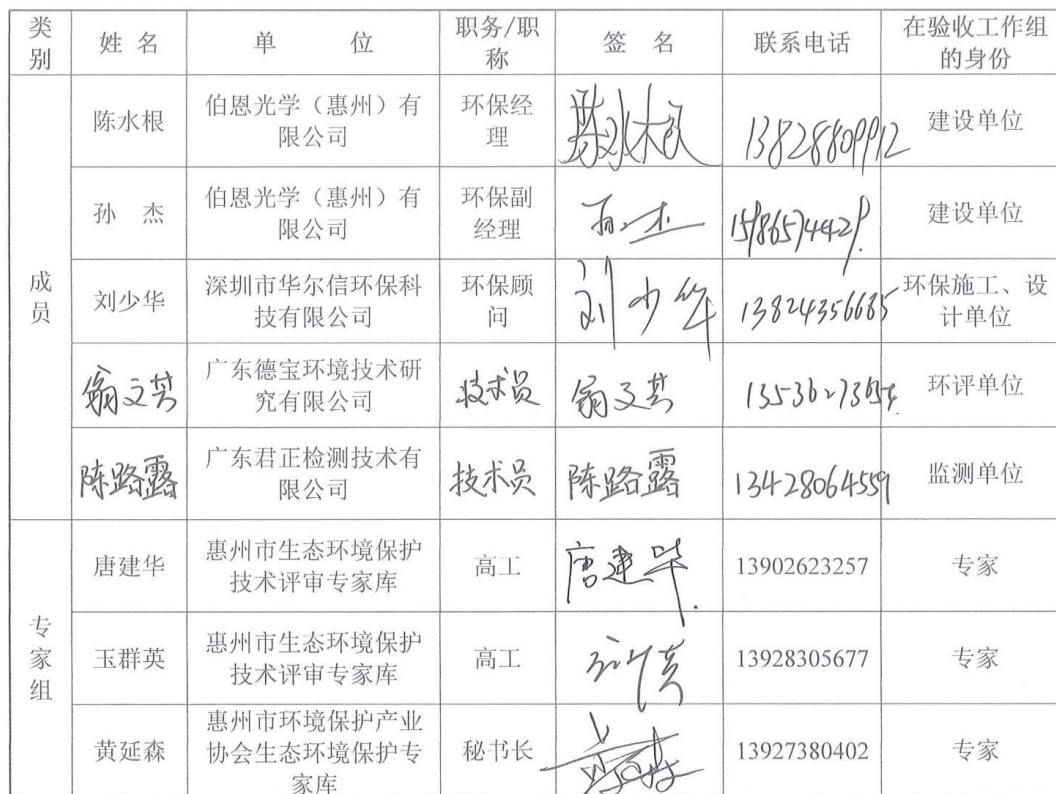 类别 姓 名 单 位 职务/职称 签 名 联系电话 在验收工作组的身份
成员
陈水根 伯恩光学（惠州）有限公司 环保经理 陈水根 13828809912 建设单位
孙 杰 伯恩光学（惠州）有限公司 环保副经理 孙杰 建设单位
刘少华 深圳市华尔信环保科技有限公司 环保顾问 刘少华 13824356685 环保施工、设计单位
翁文英 广东德宝环境技术研究有限公司 技术员 翁文英 环评单位
陈路露 广东君正检测技术有限公司 技术员 陈路露 13428064559 监测单位
专家组
唐建华 惠州市生态环境保护技术评审专家库 高工 唐建华 13902623257 专家
玉群英 惠州市生态环境保护技术评审专家库 高工 13928305677 专家
黄延森 惠州市环境保护产业协会生态环境保护专家库 秘书长 13927380402 专家